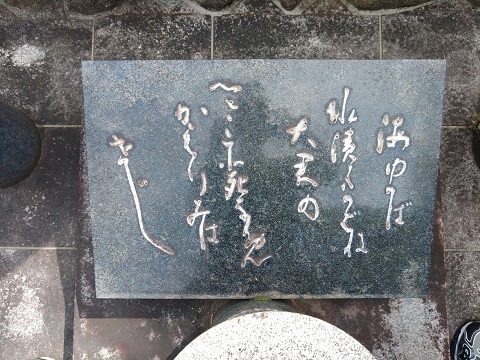 海ゆかば
水漬くかばね
大君の
へにこそ死なめ
かへりみは
せじ